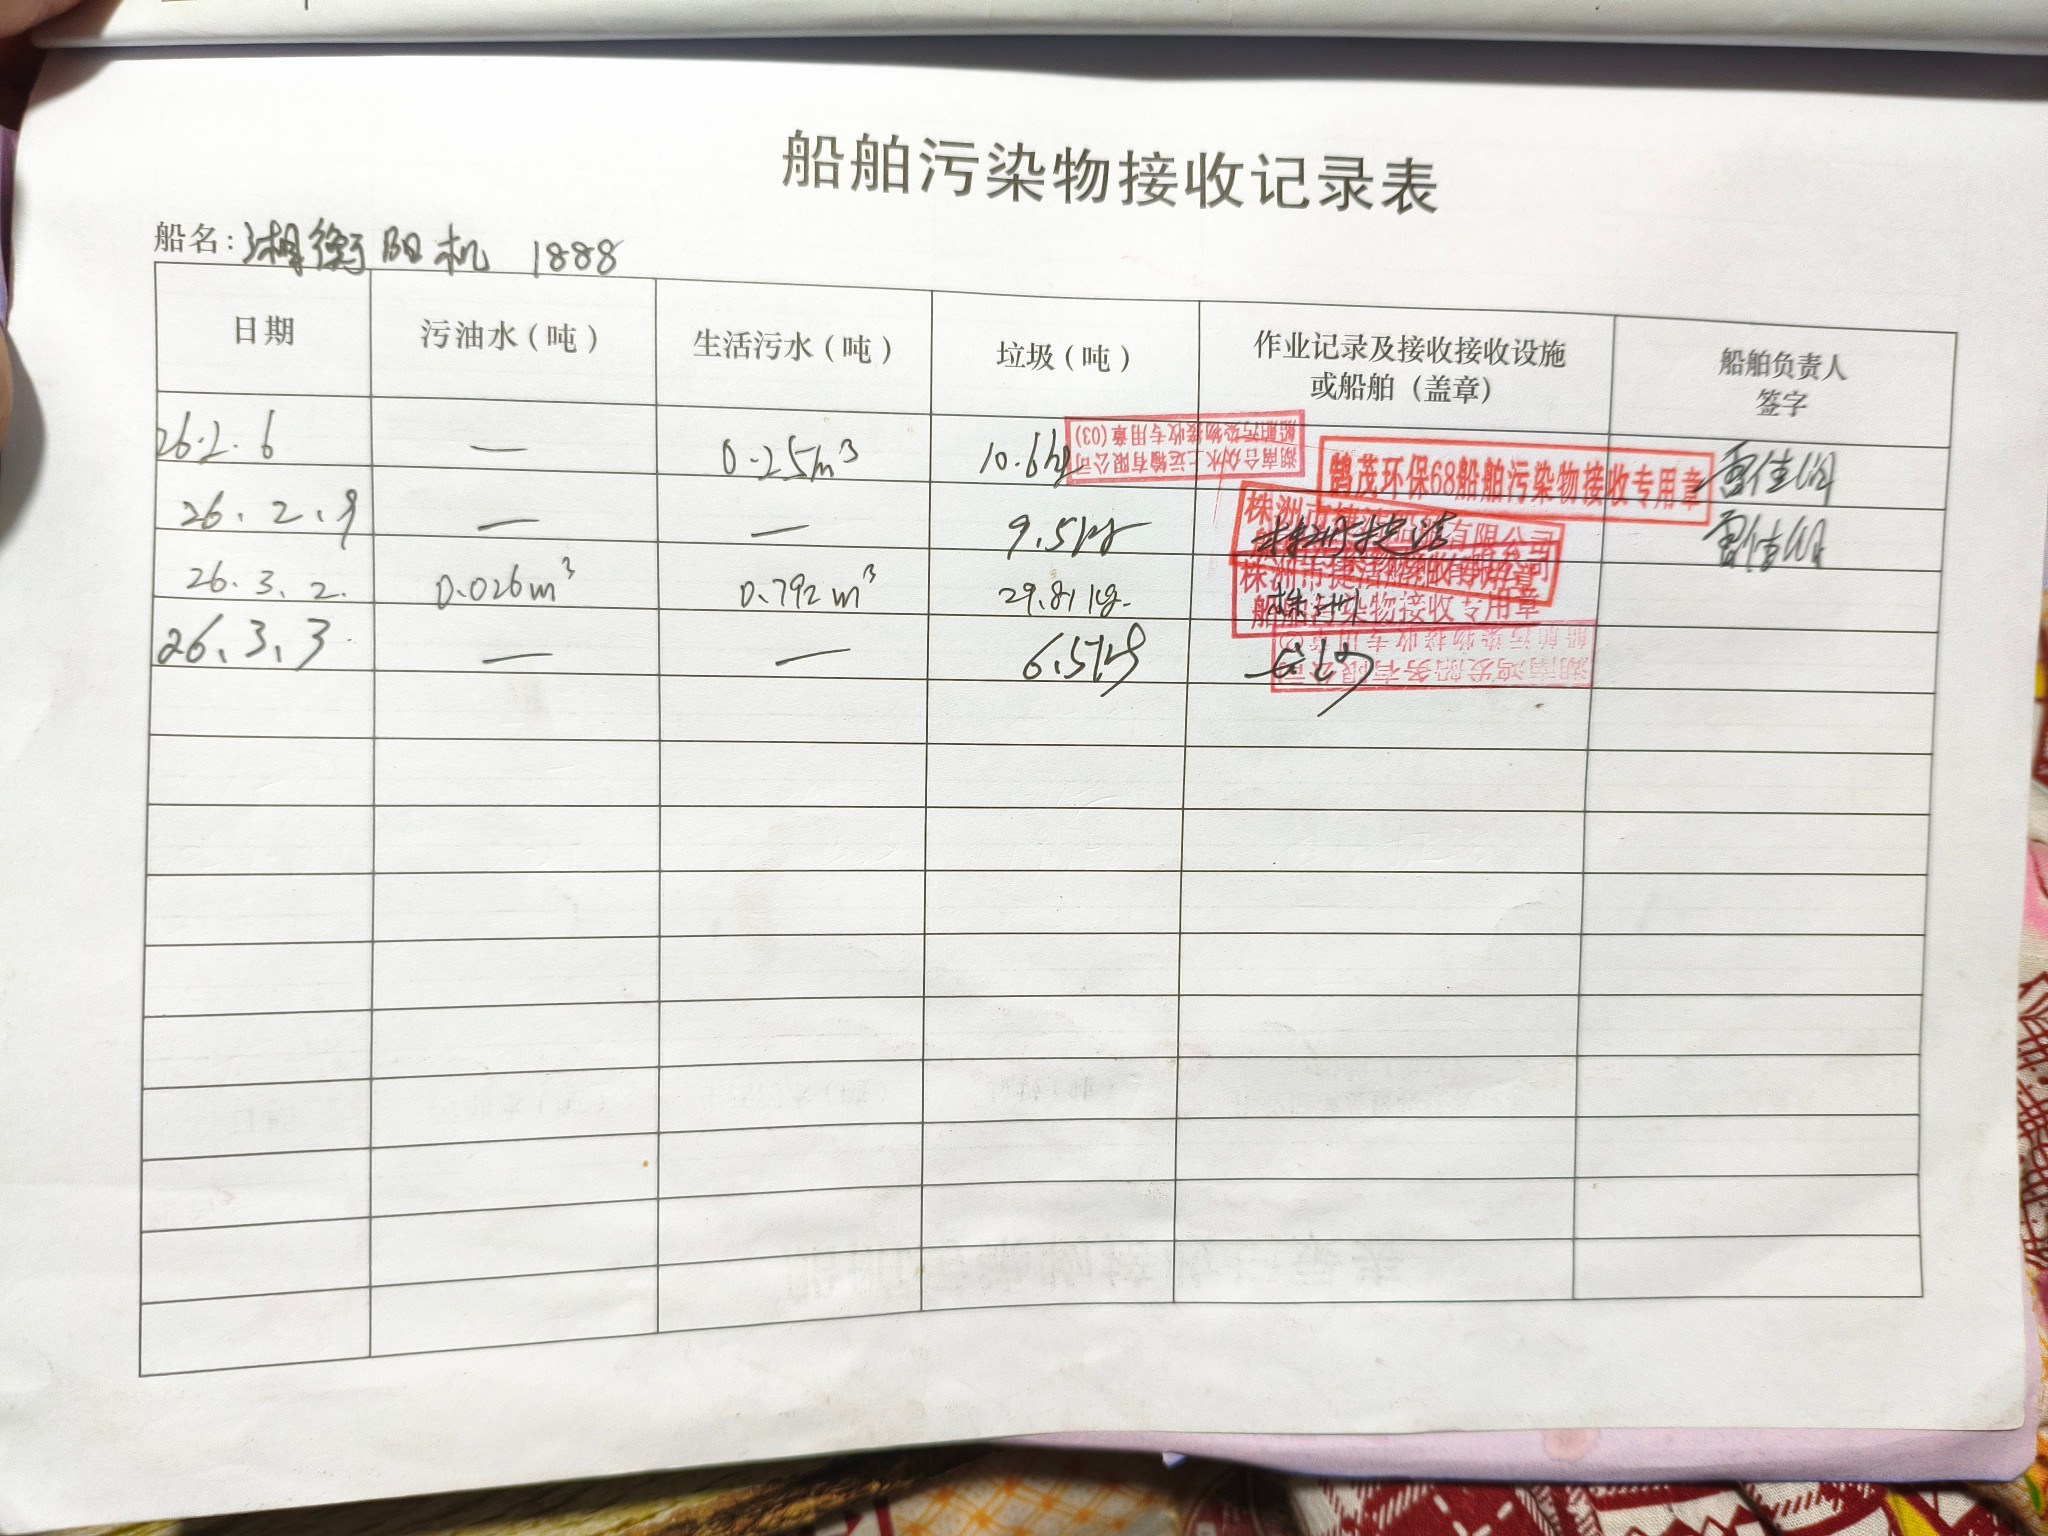 船舶污染物接收记录表
船名: 湘衡阳机 1888
日期 污油水(吨) 生活污水(吨) 垃圾(吨) 作业记录及接收接收设施或船舶(盖章) 船舶负责人签字
26.2.6 — 0.25m³ 10.6kg
湖南合众水上运输有限公司
船舶污染物接收专用章(03)
鹤茂环保68船舶污染物接收专用章
26.2.9 — — 9.5kg
26.3.2. 0.026m³ 0.792m³ 29.81kg.
株洲
船舶污染物接收专用章
26.3.3 — — 6.5kg
湖南鸿发船务有限公司
船舶污染物接收专用章(2)